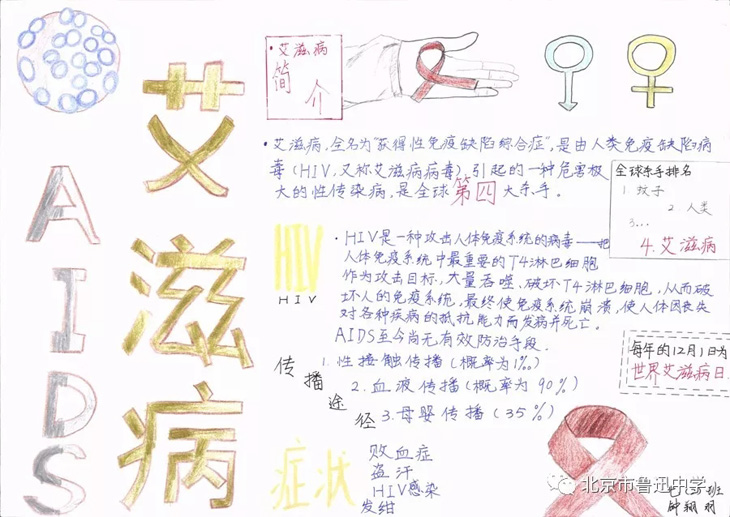 艾滋病
AIDS
·艾滋病
简介
·艾滋病,全名为“获得性免疫缺陷综合症”,是由人类免疫缺陷病
毒(HIV,又称艾滋病病毒)引起的一种危害极
大的性传染病,是全球第四大杀手。
全球杀手排名
1. 蚊子
2. 人类
3....
4. 艾滋病
HIV
HIV
·HIV是一种攻击人体免疫系统的病毒——把
人体免疫系统中最重要的T4淋巴细胞
作为攻击目标,大量吞噬、破坏T4淋巴细胞,从而破
坏人的免疫系统,最终使免疫系统崩溃,使人体因丧失
对各种疾病的抵抗能力而发病并死亡。
AIDS至今尚无有效防治手段.
每年的12月1日为
世界艾滋病日.
传播途径
1. 性接触传播(概率为1‰)
2. 血液传播(概率为90%)
3. 母婴传播(35%)
症状
败血症
盗汗
HIV感染
发绀
北京市鲁迅中学
班
钟翔羽